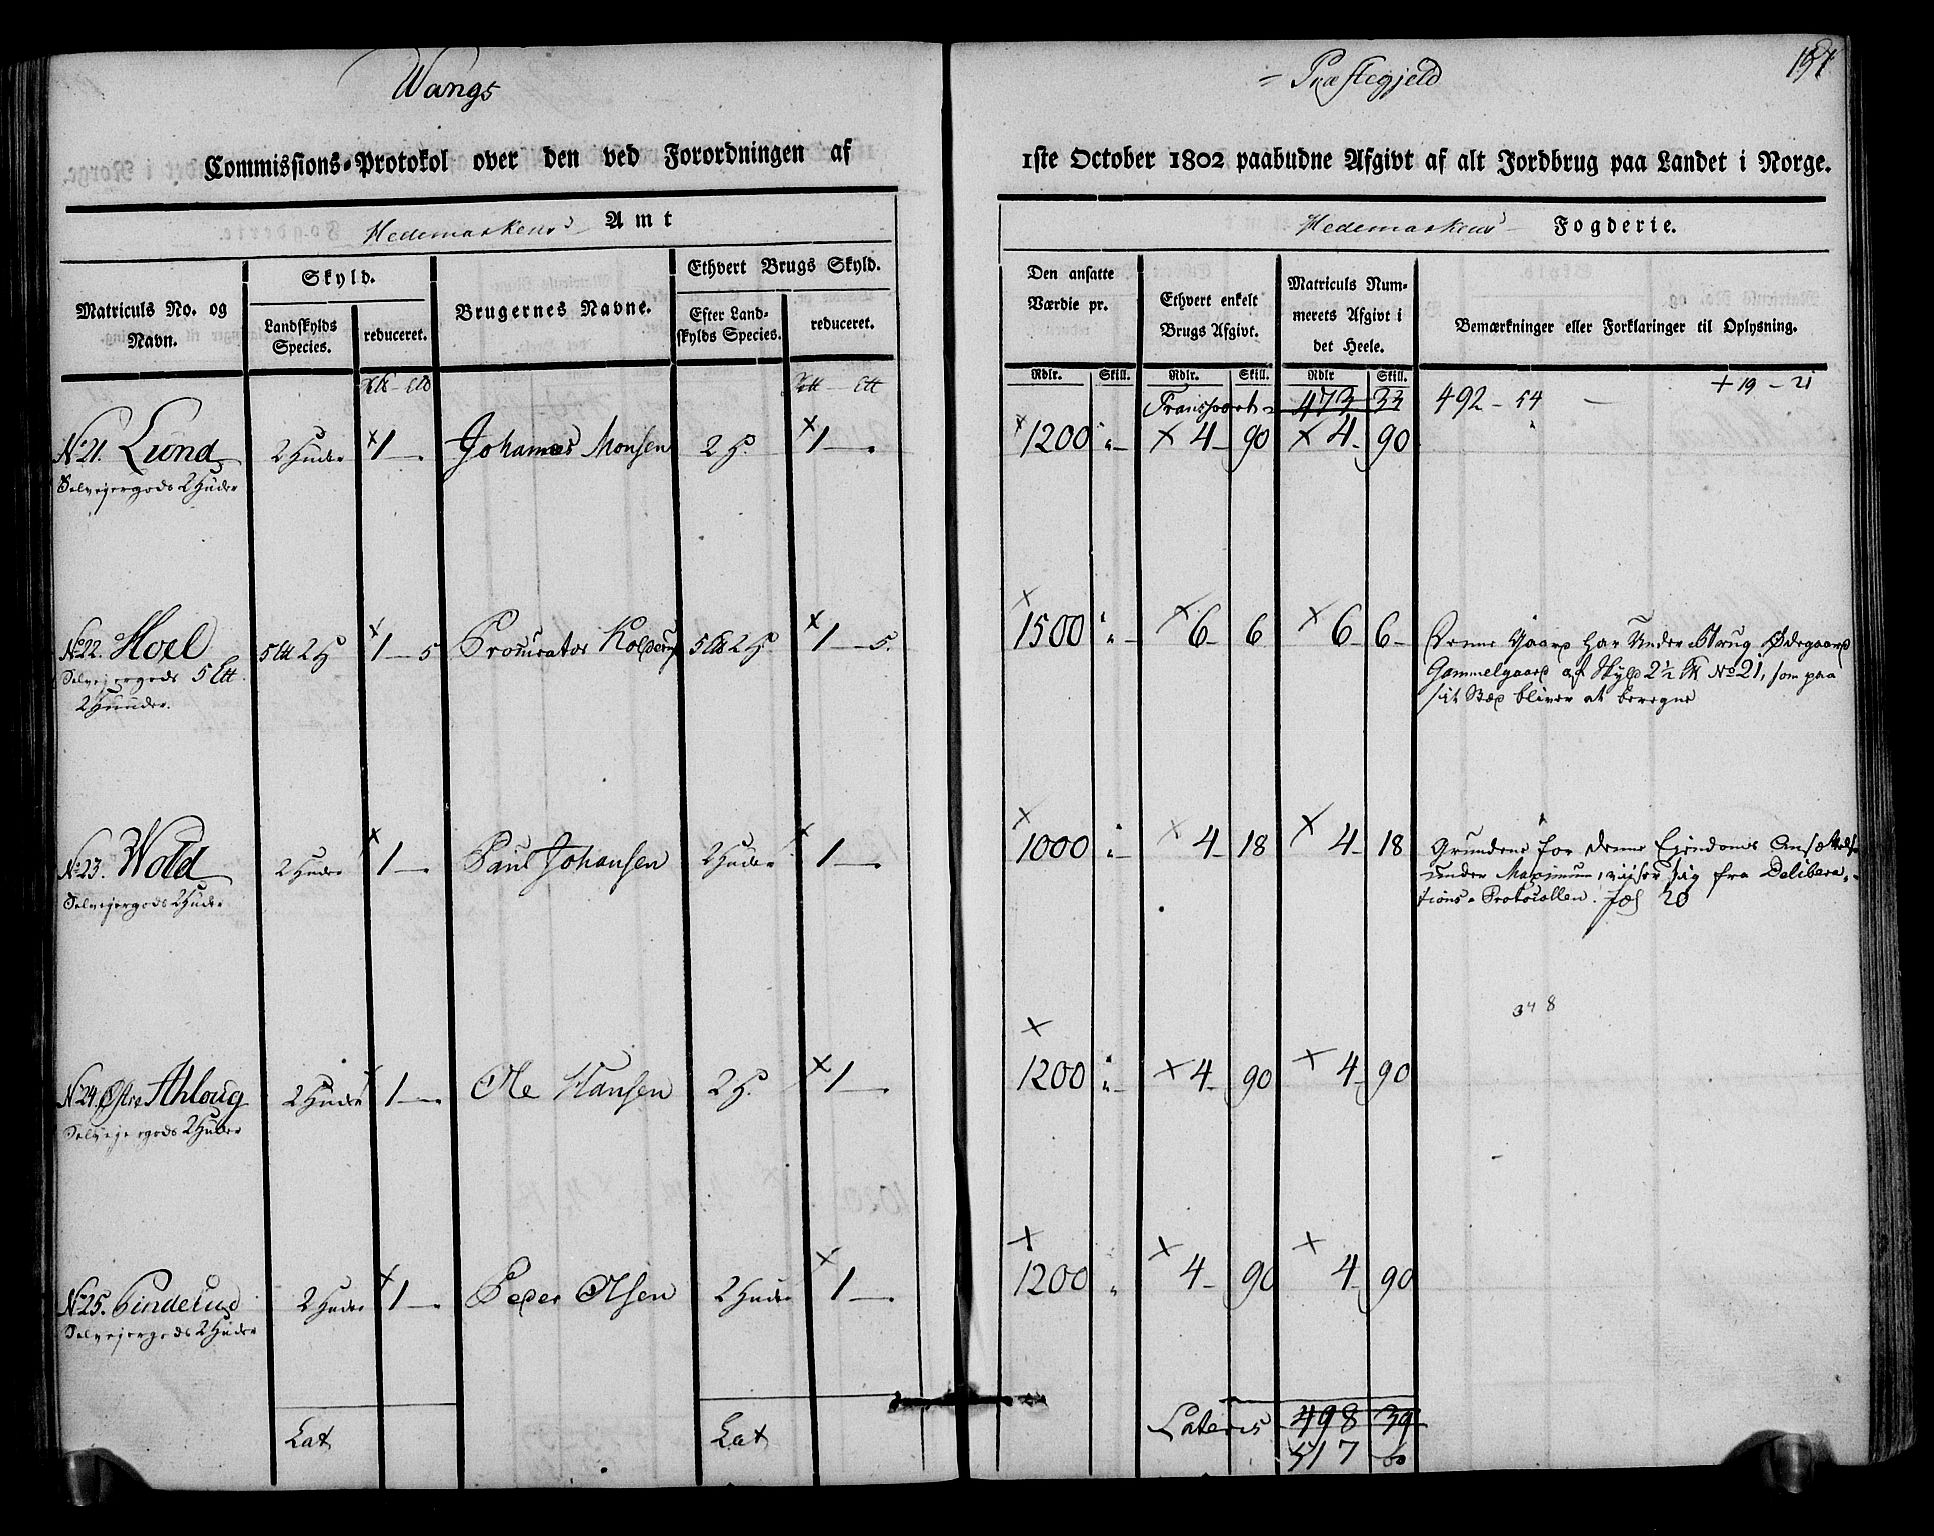 Wangs
= Præstegjeld
Commissions=Protokol over den ved Forordningen af
1ste October 1802 paabudne Afgivt af alt Jordbrug paa Landet i Norge.
Hedemarkens Amt
Hedemarkens Fogderie.
Matriculs No. og Navn.
Skyld.
Landskylds Species.
reduceret.
Brugernes Navne.
Ethvert Brugs Skyld.
Efter Landskylds Species.
reduceret.
Den ansatte Værdie pr.
Ethvert enkelt Brugs Afgivt.
Matriculs Nummerets Afgivt i det Heele.
Bemærkninger eller Forklaringer til Oplysning.
Rdlr. Skill. Rdlr. Skill. Rdlr Skill.
Transport = 473 33 492 - 54 + 19 - 21
No 21. Lund 2 Huder × 1 — Johannes Monsen 2 H. × 1 — × 1200 × 4 - 90 × 4 - 90
Selvejergods 2 Huder
No 22. Hoel 5 ℔ 2 H × 1 — 5 Procurator Kolderup 5 ℔ 2 H × 1 — 5. × 1500 × 6 - 6 × 6 6 - Denne Gaard har Under Brug Ødegaard
Selvejergods 5 ℔
Gammelgaard af Skyld 2½ No 21, som paa
2 Huuder.
sit Stæd bliver at beregne
No 23. Wold 2 Huder × 1 — Paul Johansen 2 Huder × 1 — × 1000 × 4 - 18 × 4 - 18 Grundene for denne Ejendoms Ansættelse
Selvejergods 2 Huder
under Maximum, viiser sig fra Delibera-
tions-Protocollen. 20
348
No 24. Østre Ahloug 2 Huder 1 — Ole Hansen 2 H. × 1 — × 1200 × 4 - 90 × 4 - 90
Selvejergods 2 Huder
No 25. Finderud 2 Huder × 1 — Peder Olsen 2 Huder × 1 — × 1200 × 4 - 90 × 4 90
Selvejergods 2 Huder
Lat Lat Lateris 498 39
517 60